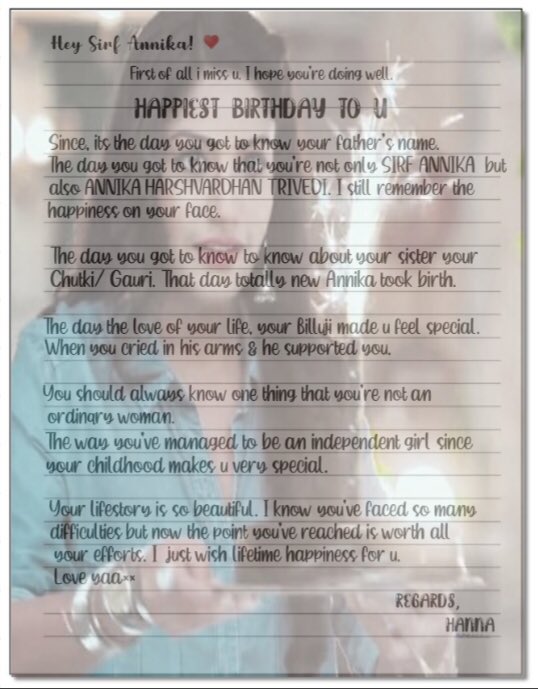 Hey Sirf Annika! ❤
First of all i miss u. I hope you're doing well.
HAPPIEST BIRTHDAY TO U
Since, its the day you got to know your father's name.
The day you got to know that you're not only SIRF ANNIKA but
also ANNIKA HARSHVARDHAN TRIVEDI. I still remember the
happiness on your face.
The day you got to know to know about your sister your
Chutki/ Gauri. That day totally new Annika took birth.
The day the love of your life, your Billuji made u feel special.
When you cried in his arms & he supported you.
You should always know one thing that you're not an
ordinary woman.
The way you've managed to be an independent girl since
your childhood makes u very special.
Your lifestory is so beautiful. I know you've faced so many
difficulties but now the point you've reached is worth all
your efforts. I just wish lifetime happiness for u.
Love yaa××
REGARDS,
HANNA